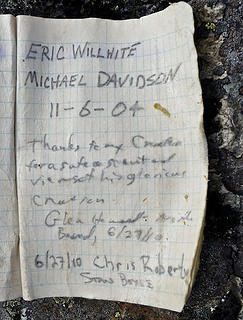 ERIC WILLHITE
MICHAEL DAVIDSON
11-6-04
Thanks to my Creator
for a safe ascent and
view of his glorious
Creation.
Glen
Bend, 6/27/10.
6/27/10 Chris Roberts